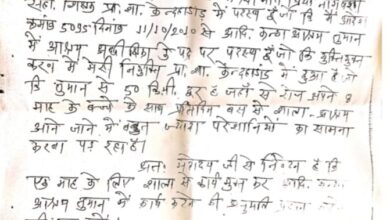 सहा. शिक्षक प्रा. शा. केन्दहाडांड में पदस्थ हूँ जो कि मैं आदेश
क्रमांक 5095 दिनांक 11/10/2010 से आदि. कन्या आश्रम तुमान
में आश्रम अधीक्षिका के पद पर पदस्थ हूँ जो कि
करण में मेरी नियुक्ति प्रा. शा. केन्दहाडांड में हुआ है जो
कि तुमान से 50 कि.मी. दूर है जहाँ से रोज आने
माह के बच्चे के साथ प्रतिदिन बस से शाला - आश्रम
आने जाने में बहुत ज्यादा परेशानियों का सामना
करना पड़ रहा है।
अतः महोदय जी से निवेदन है कि
एक माह के लिए शाला से कार्य मुक्त कर आदि. कन्या
आश्रम तुमान में कार्य करने की अनुमति प्रदान